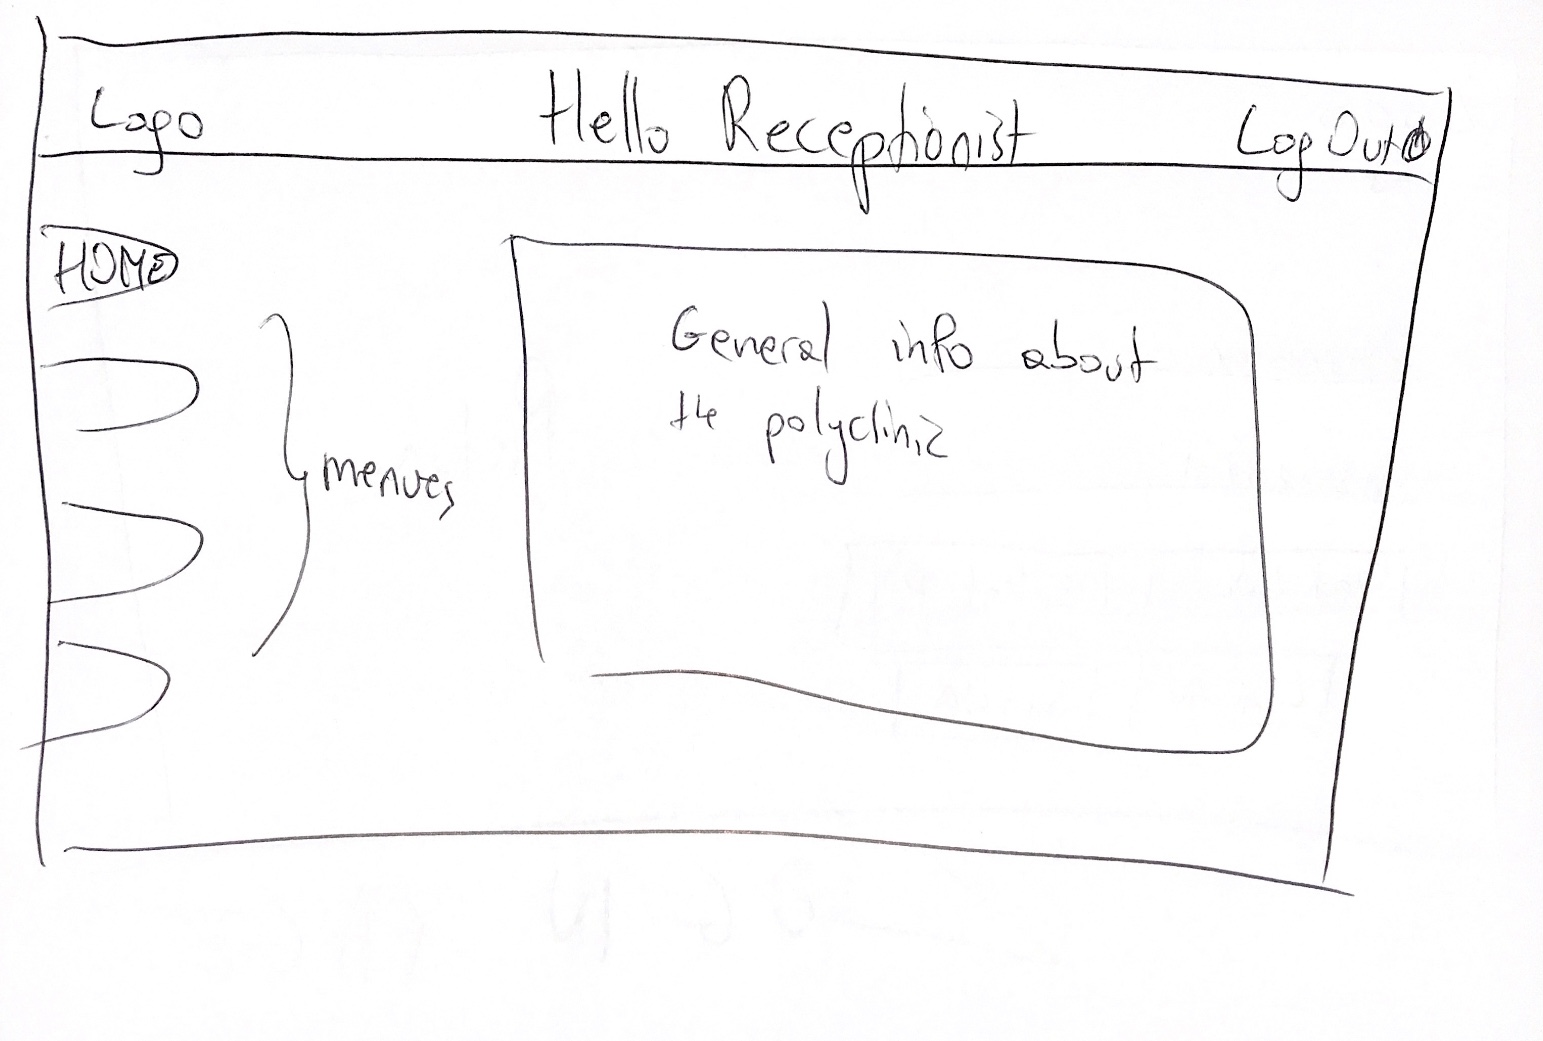 Logo
Hello Receptionist
Log Out
HOME
menues
General info about
the polyclinic